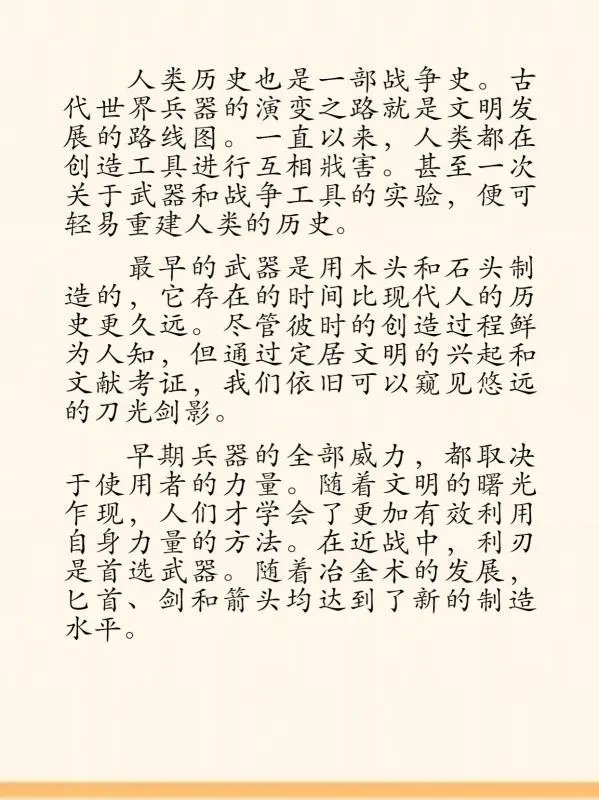 人类历史也是一部战争史。古
代世界兵器的演变之路就是文明发
展的路线图。一直以来，人类都在
创造工具进行互相戕害。甚至一次
关于武器和战争工具的实验，便可
轻易重建人类的历史。
最早的武器是用木头和石头制
造的，它存在的时间比现代人的历
史更久远。尽管彼时的创造过程鲜
为人知，但通过定居文明的兴起和
文献考证，我们依旧可以窥见悠远
的刀光剑影。
早期兵器的全部威力，都取决
于使用者的力量。随着文明的曙光
乍现，人们才学会了更加有效利用
自身力量的方法。在近战中，利刃
是首选武器。随着冶金术的发展，
匕首、剑和箭头均达到了新的制造
水平。